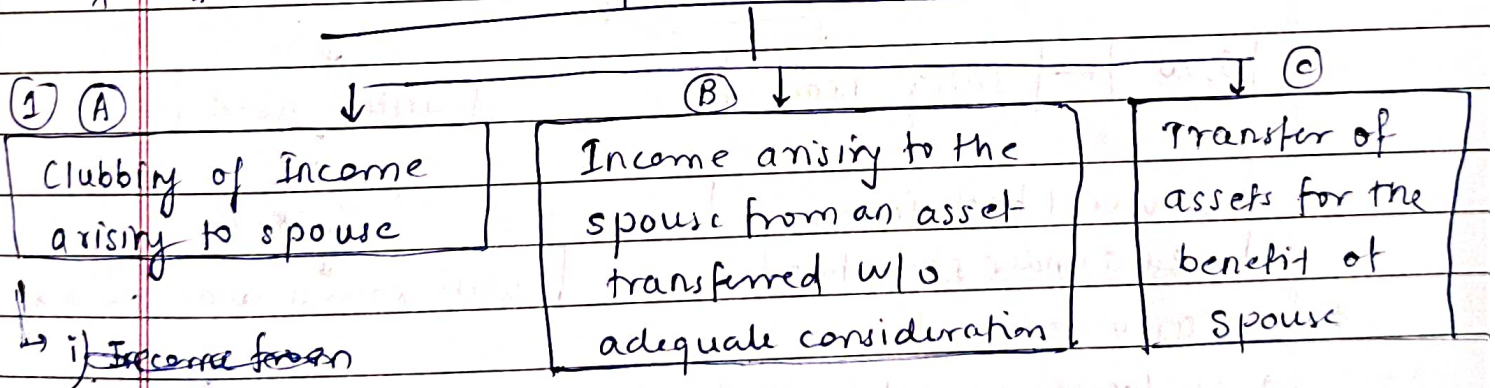 1 A
Clubbing of Income
arising to spouse
i) Income from
B
Income arising to the
spouse from an asset
transferred w/o
adequate consideration
C
Transfer of
assets for the
benefit of
spouse